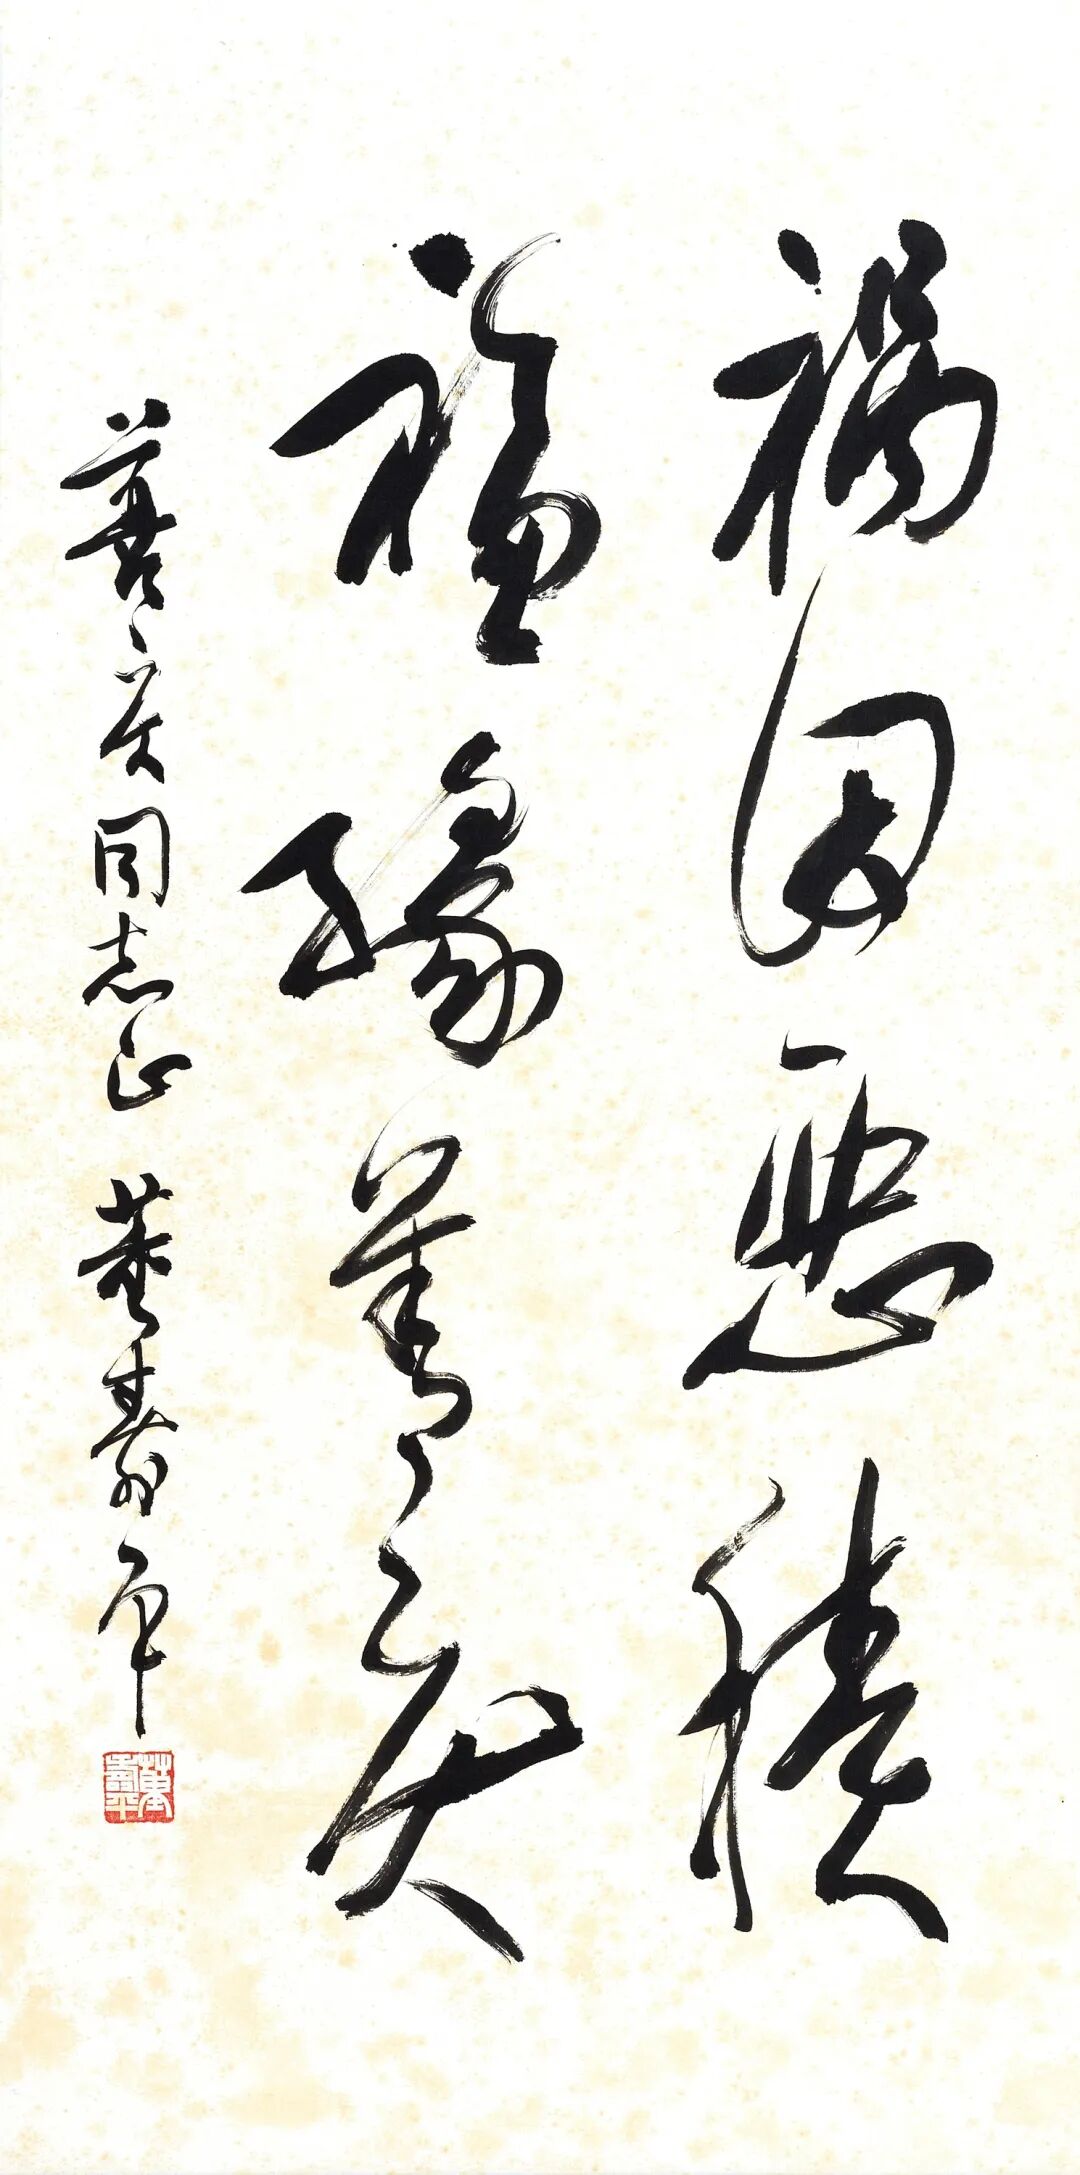 禍因惡積
福緣善慶
善慶同志正 董壽平
董壽平